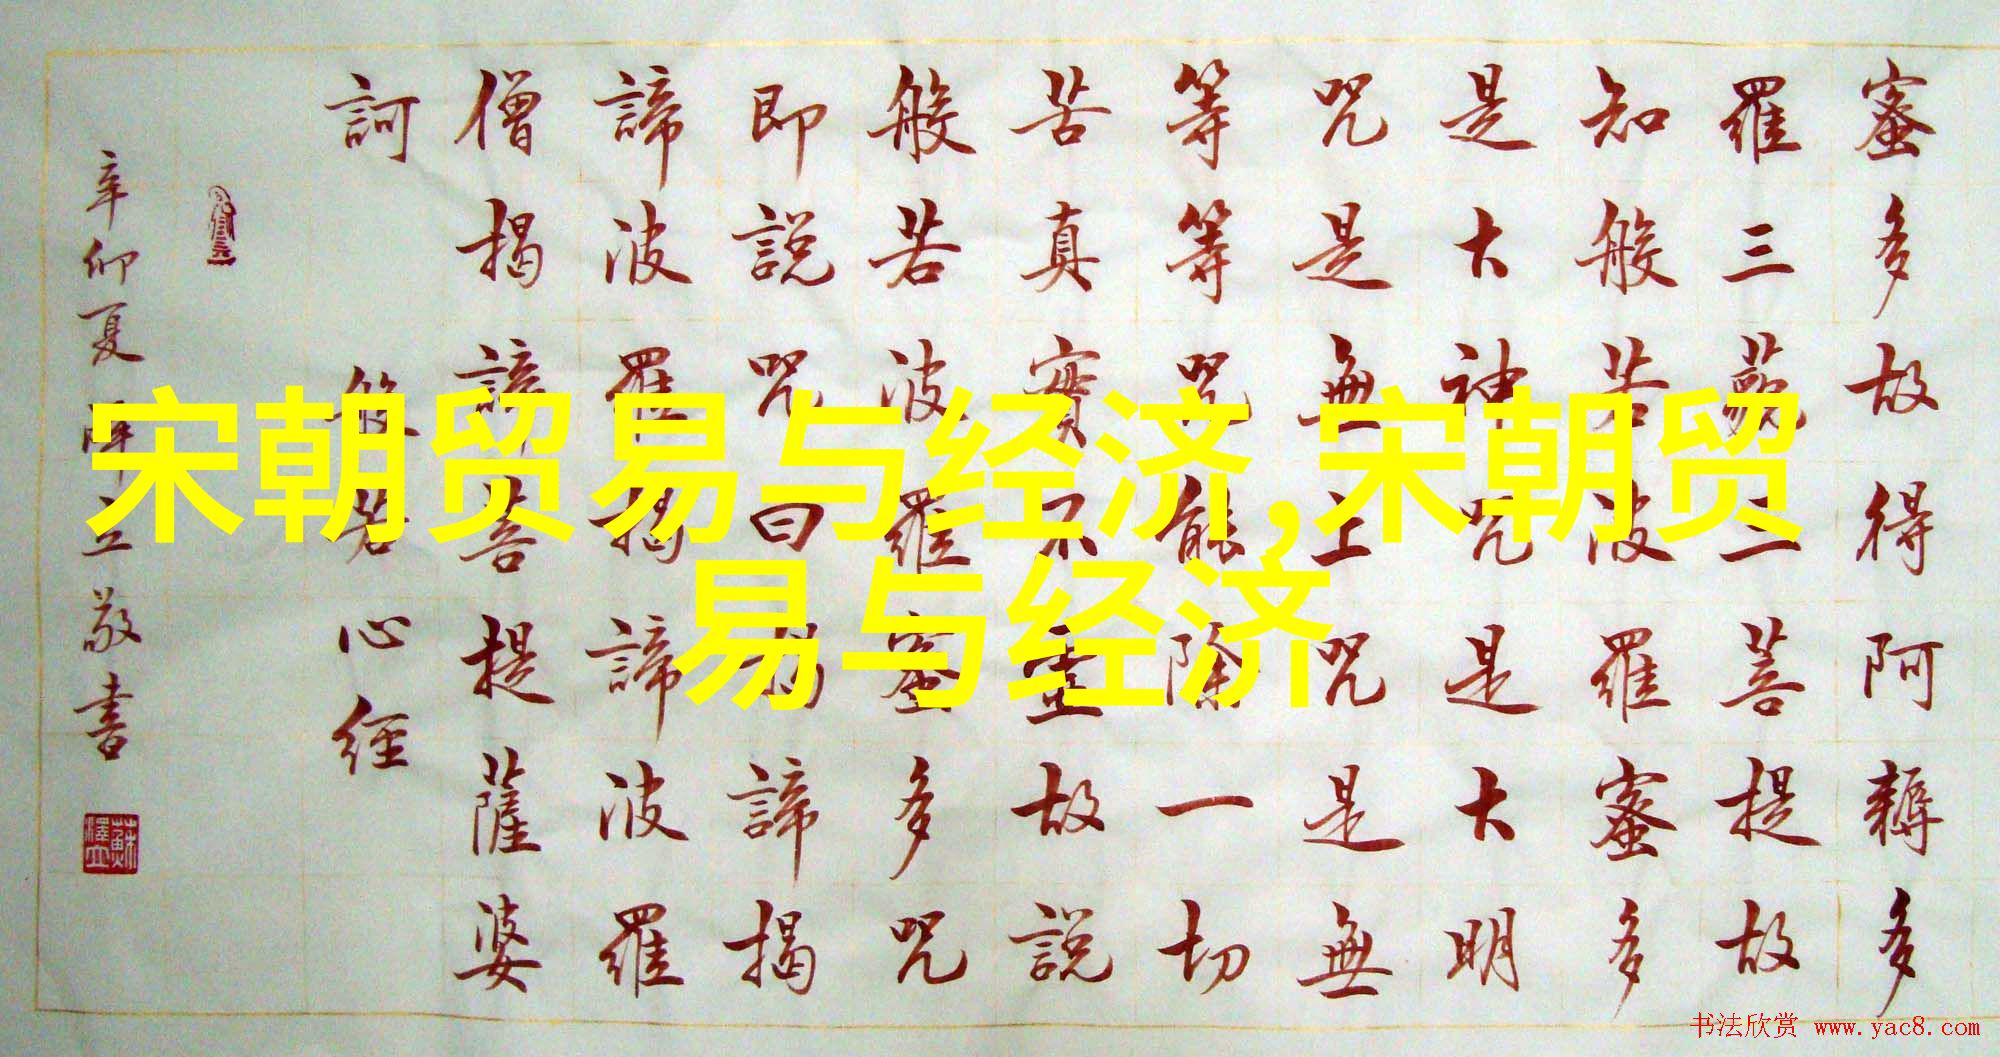 宋朝贸易与经济,宋朝贸
易与经济
蜜多故得阿耨多
羅三藐三菩提故
知般若波羅蜜多
是大神咒是大明
咒是無上咒是無
等等咒能除一切
苦真實不虛故說
般若波羅蜜多咒
即說咒曰揭諦揭
諦波羅揭諦波羅
僧揭諦菩提薩婆
訶
般若心經
辛卯夏立敬書
书法欣赏 www.yac8.com